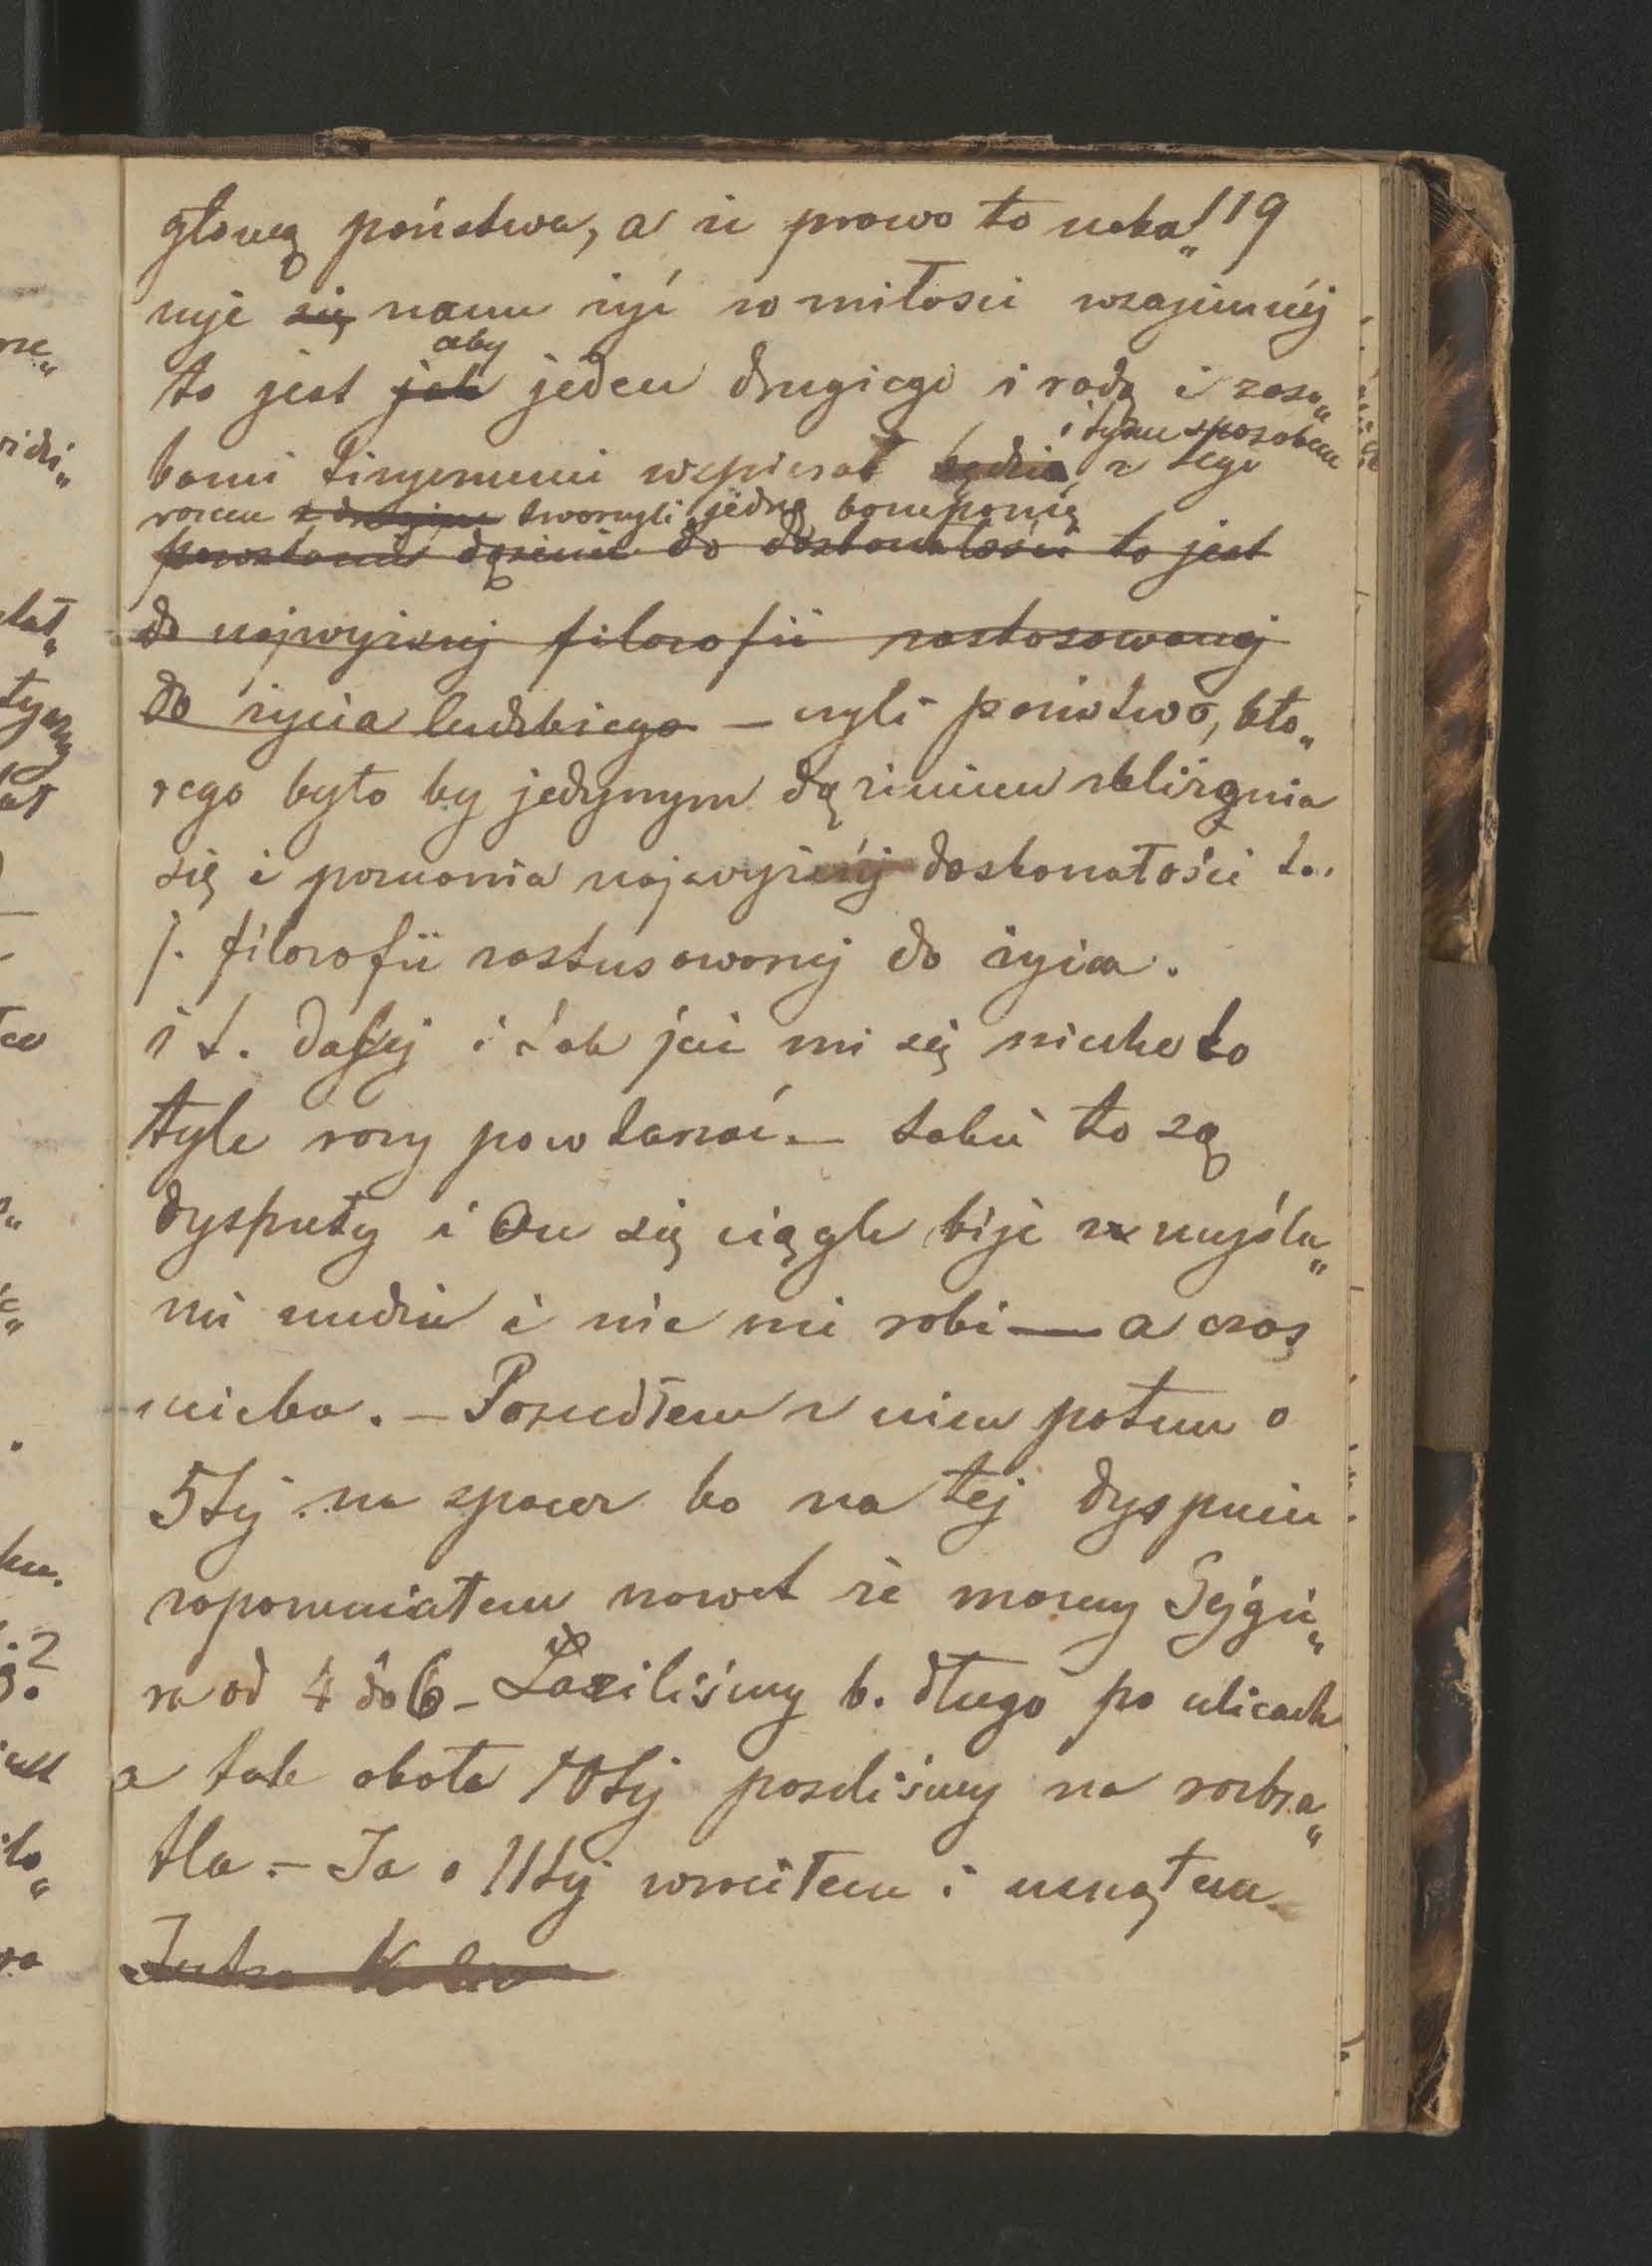 głową państwa, a że prawo to naka„ 119
zuje się nam żyć w miłości wzajemnéj
aby
to jest jak jeden drugiego i radą i zaso„
i tym sposobem
bami fizycznemi wspierał będzie, z tego
razem z drugim tworzyli jedną kompanię
powstanie dążenie do doskonałości to jest
do najwyższej filozofii zastosowanej
do życia ludzkiego – czyli państwo, któ„
rego było by jedynym dążeniem zbliżenia
się i poznania najwyższéj doskonałości t.
j. filozofii zastosowanej do życia.
i t. dalej i tak już mi się niechce to
tyle razy powtarzać – takie to są
dysputy i On się ciągle bije z myśla„
mi nudzi i nic nie robi — a czas
ucieka. – Poszedłem z nim potem o
5tej na spacer bo na tej dyspucie
zapomniałem nawet że mamy Gejgie„
ra od 4 do 6 – Łaziliśmy b. długo po ulicach
a tak około 10tej poszliśmy na rozbra„
tla. – Ja o 11tej wróciłem i usnąłem.